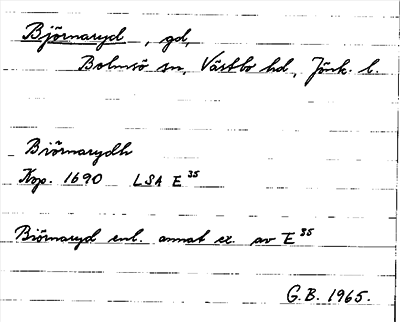 Björnaryd, gd,
Bolmsö sn, Västbo hd, Jönk. l.
Biörnarydh
Kop. 1690 LSA E 35
Biörnaryd enl. annat ex. av E 35
G.B. 1965.